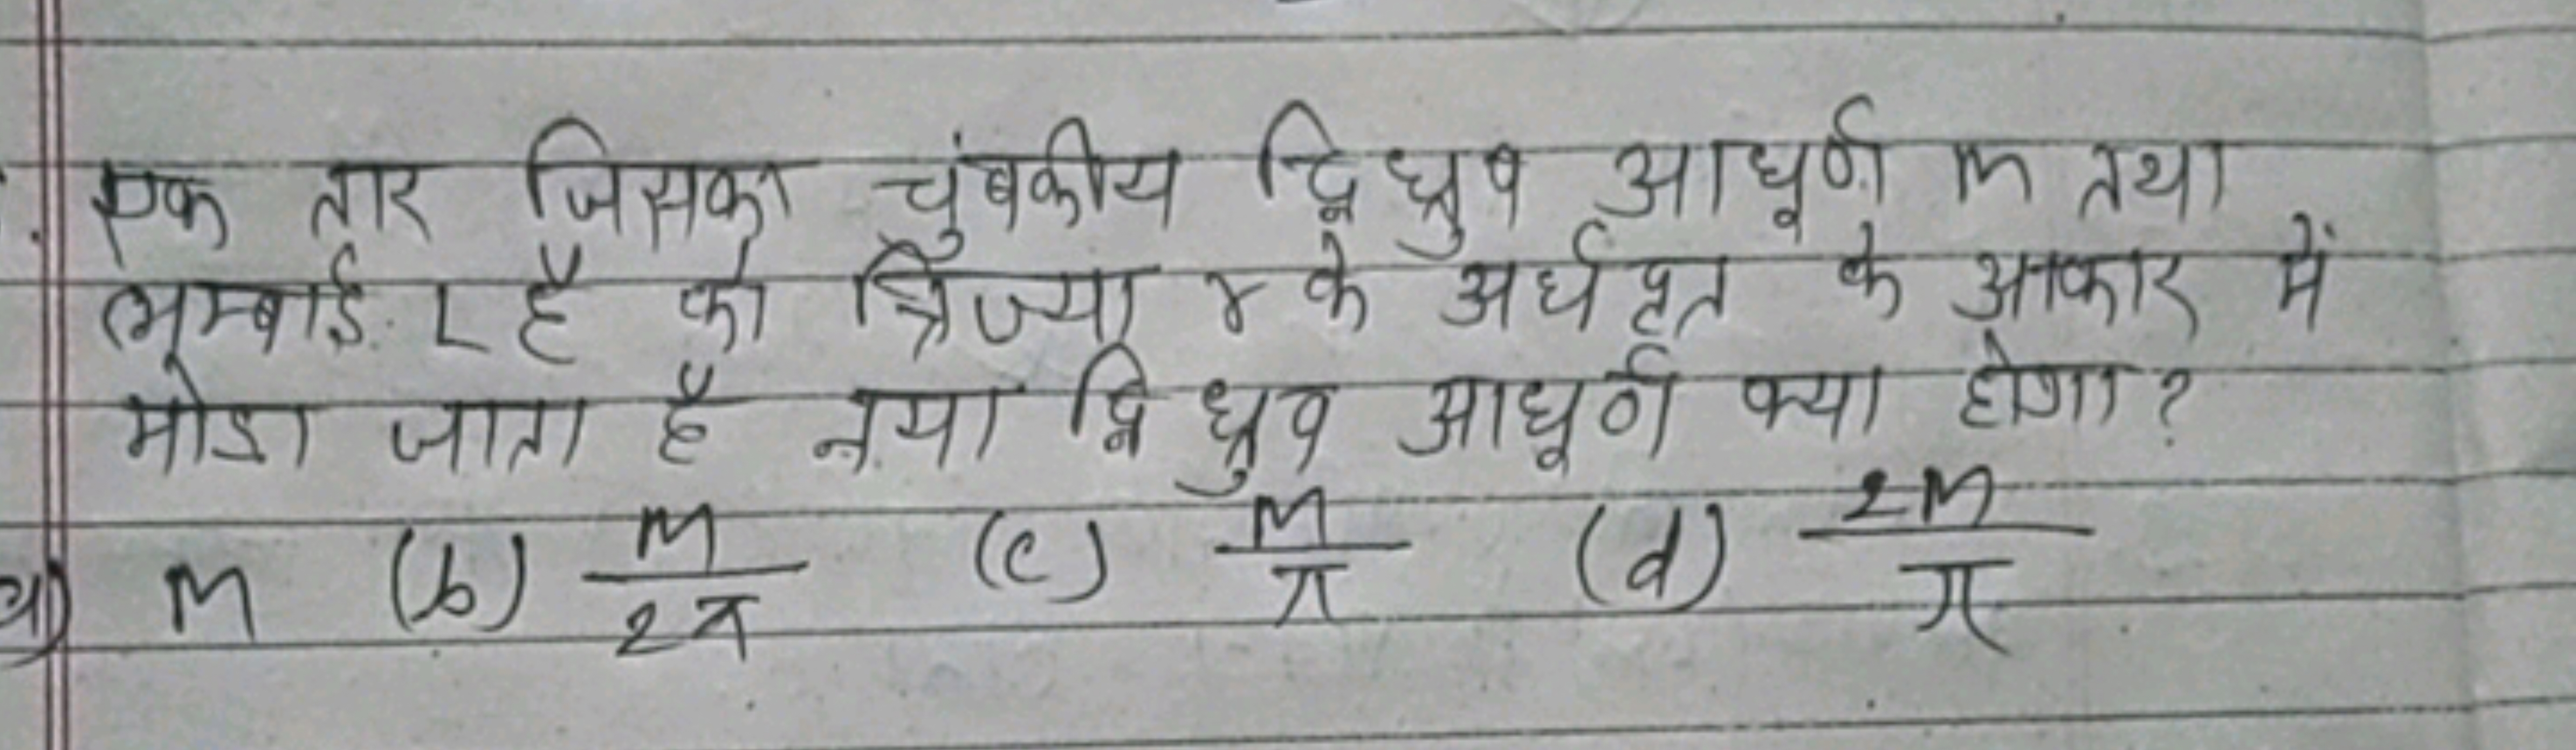 एक तार जिसका चुंबकीय द्विध्रुव आघूर्ण M तथा
लम्बाई L है को त्रिज्या r के अर्धवृत के आकार में
मोडा जाता है नया द्विध्रुव आघूर्ण क्या होगा?
a) M (b) M/2π (c) M/π (d) 2M/π